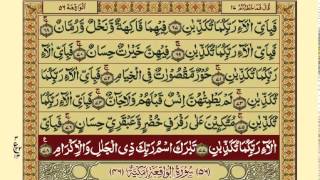 قال فما خطبكم ٢٧
الواقعة ٥٦
فَبِاَيِّ اٰلَآءِ رَبِّكُمَا تُكَذِّبٰنِ فِيْهِمَا فَاكِهَةٌ وَّنَخْلٌ وَّرُمَّانٌ
فَبِاَيِّ اٰلَآءِ رَبِّكُمَا تُكَذِّبٰنِ فِيْهِنَّ خَيْرٰتٌ حِسَانٌ
فَبِاَيِّ اٰلَآءِ رَبِّكُمَا تُكَذِّبٰنِ حُوْرٌ مَّقْصُوْرٰتٌ فِي الْخِيَامِ
فَبِاَيِّ اٰلَآءِ رَبِّكُمَا تُكَذِّبٰنِ لَمْ يَطْمِثْهُنَّ اِنْسٌ قَبْلَهُمْ وَلَا جَآنٌّ
فَبِاَيِّ اٰلَآءِ رَبِّكُمَا تُكَذِّبٰنِ مُتَّكِـِٕيْنَ عَلٰى رَفْرَفٍ خُضْرٍ وَّعَبْقَرِيٍّ حِسَانٍ فَبِاَيِّ
اٰلَآءِ رَبِّكُمَا تُكَذِّبٰنِ تَبٰرَكَ اسْمُ رَبِّكَ ذِي الْجَلٰلِ وَالْاِكْرَامِ
(٥٦) سُوْرَةُ الْوَاقِعَةِ مَكِّيَّةٌ (٤٦)